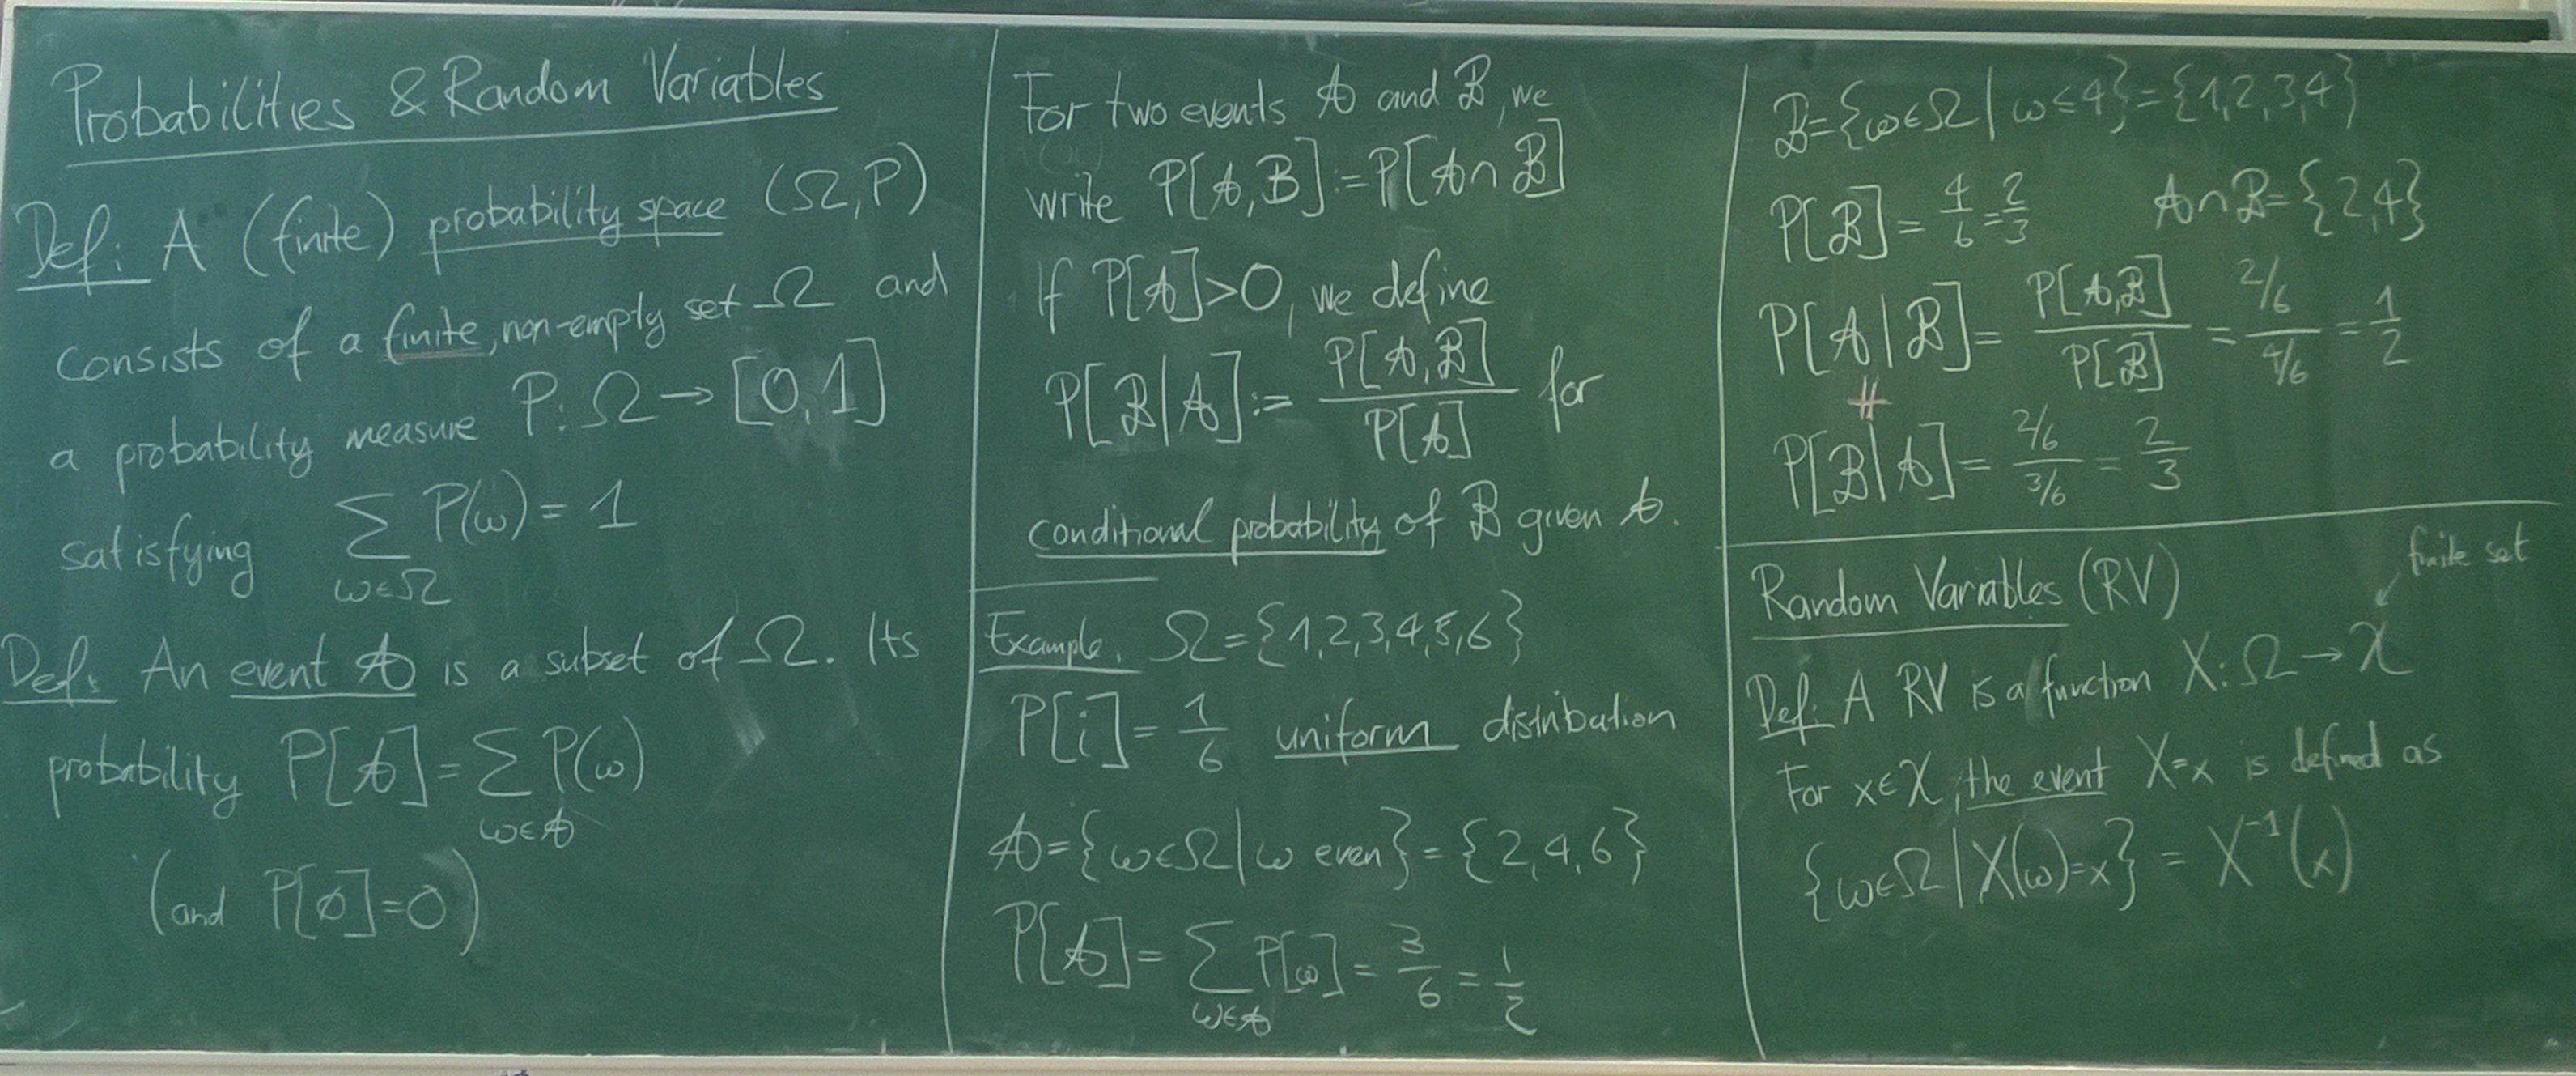 Probabilities & Random Variables
Def: A (finite) probability space (Ω,P)
consists of a finite, non-empty set Ω and
a probability measure P: Ω → [0,1]
satisfying ∑ P(ω) = 1
ω∈Ω
Def: An event 𝒜 is a subset of Ω. Its
probability P[𝒜] = ∑ P(ω)
ω∈𝒜
(and P[∅]=0)
For two events 𝒜 and ℬ, we
write P[𝒜,ℬ] := P[𝒜∩ℬ]
If P[𝒜]>0, we define
P[ℬ|𝒜] := P[𝒜,ℬ] / P[𝒜] for
conditional probability of ℬ given 𝒜.
Example. Ω = {1,2,3,4,5,6}
P[i] = 1/6 uniform distribution
𝒜 = {ω∈Ω | ω even} = {2,4,6}
P[𝒜] = ∑ P[ω] = 3/6 = 1/2
ω∈𝒜
ℬ = {ω∈Ω | ω≤4} = {1,2,3,4}
P[ℬ] = 4/6 = 2/3 𝒜∩ℬ = {2,4}
P[𝒜|ℬ] = P[𝒜,ℬ] / P[ℬ] = 2/6 / 4/6 = 1/2
≠
P[ℬ|𝒜] = 2/6 / 3/6 = 2/3
Random Variables (RV)
finite set
Def: A RV is a function X: Ω → 𝒳
For x∈𝒳, the event X=x is defined as
{ω∈Ω | X(ω)=x} = X⁻¹(x)